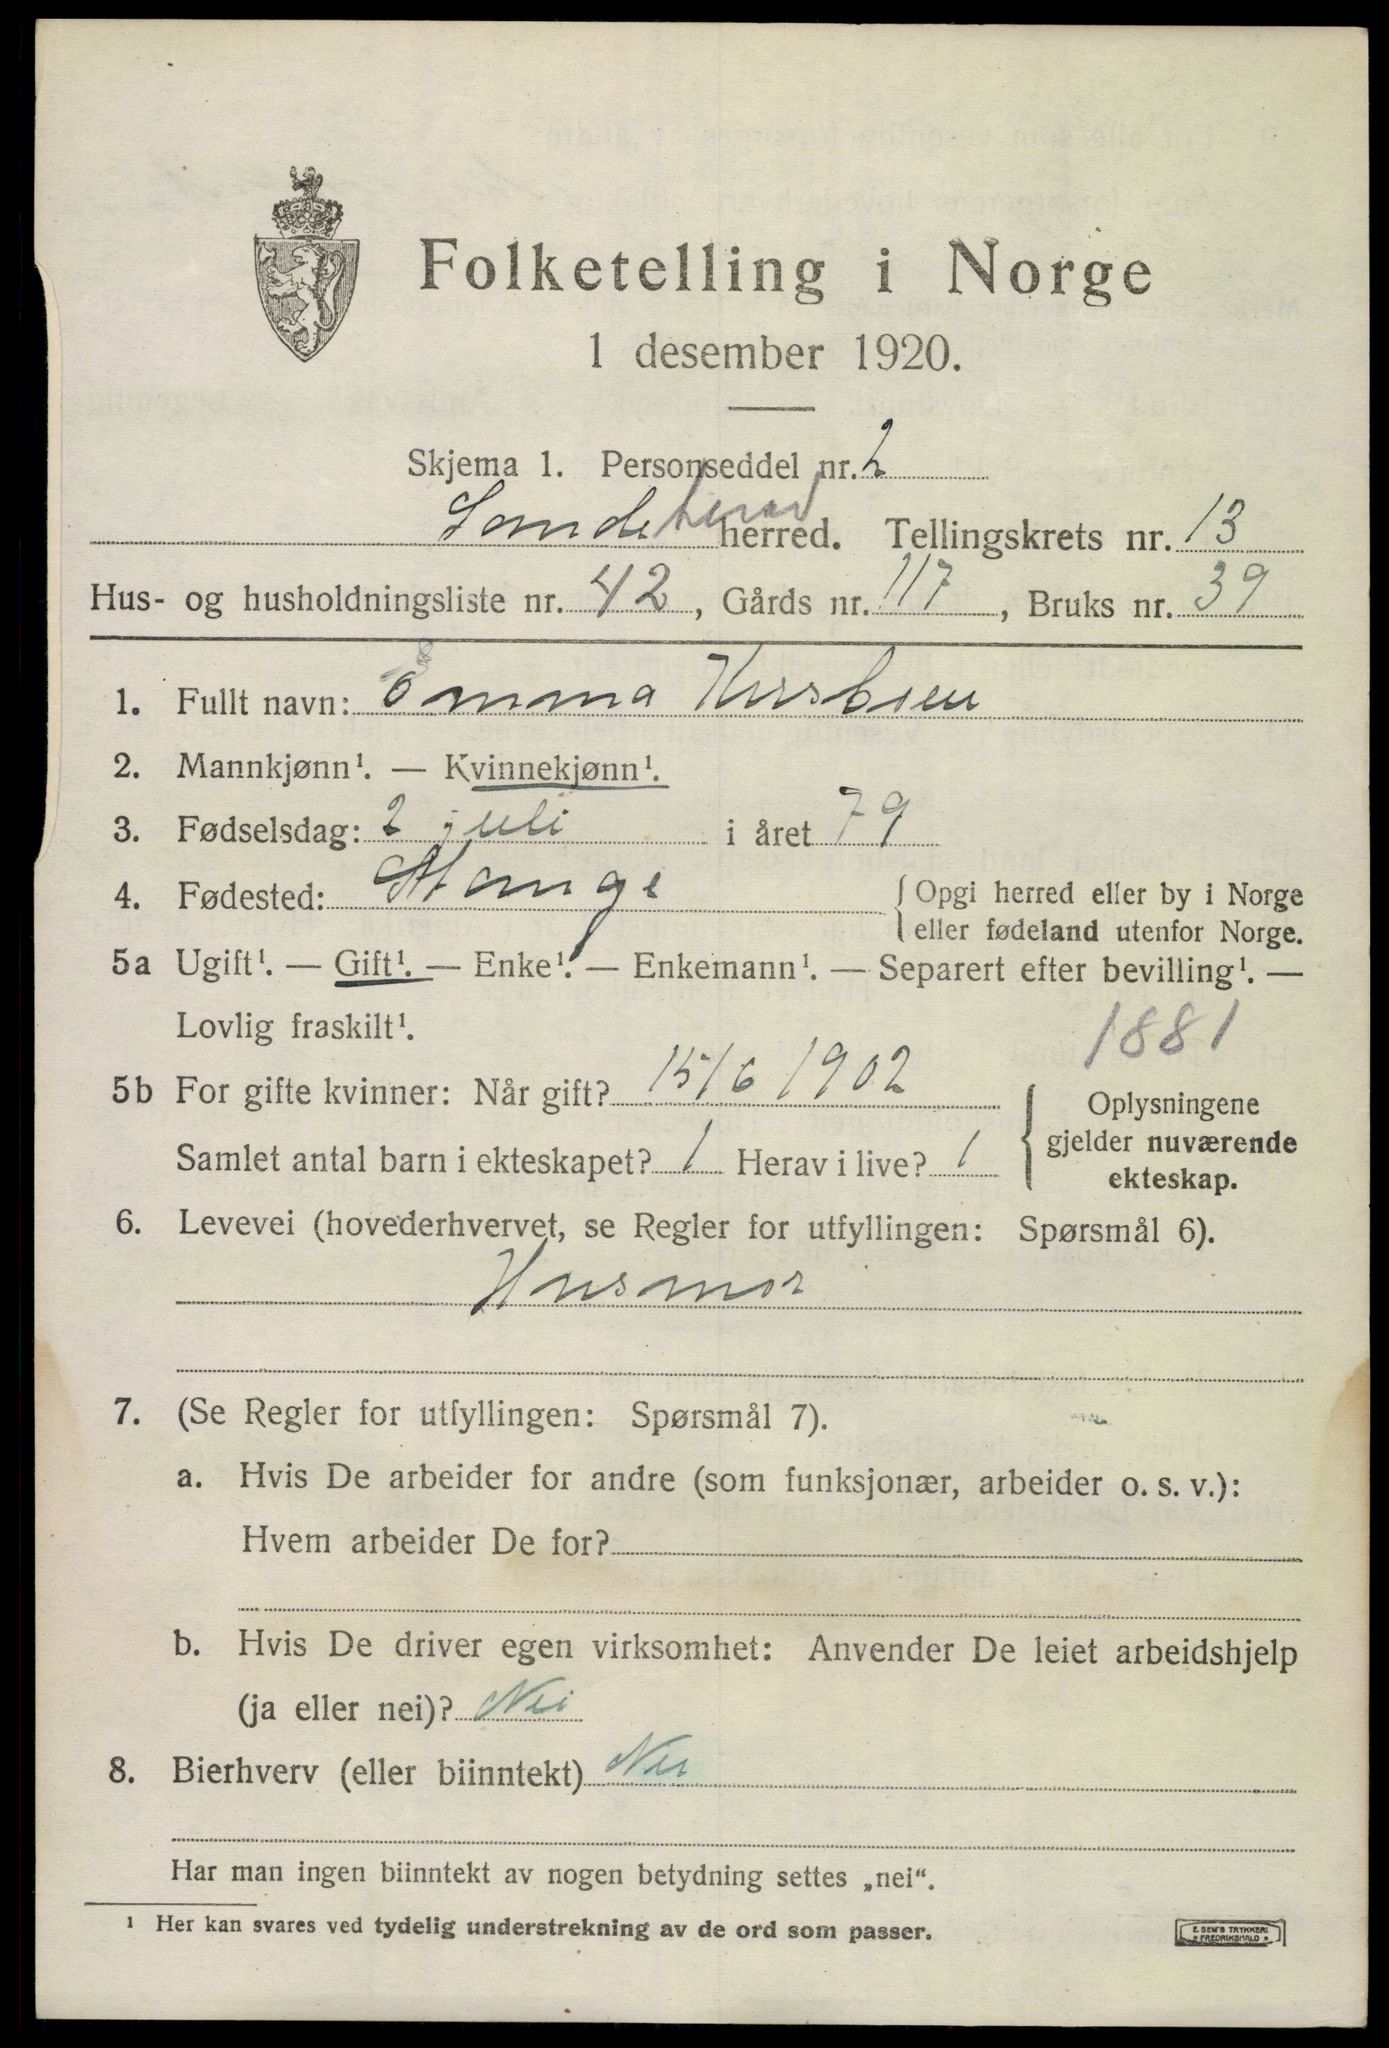 Folketelling i Norge
1 desember 1920.
Skjema 1. Personseddel nr. 2
Sandeherad herred. Tellingskrets nr. 13
Hus- og husholdningsliste nr. 42, Gårds nr. 117, Bruks nr. 39
1. Fullt navn: Emma
2. Mannkjønn¹. — Kvinnekjønn¹.
3. Fødselsdag: 2 juli i året 79
4. Fødested: Stange {Opgi herred eller by i Norge
eller fødeland utenfor Norge.
5a Ugift¹. — Gift¹. — Enke¹. — Enkemann¹. — Separert efter bevilling¹. —
Lovlig fraskilt¹.
1881
5b For gifte kvinner: Når gift? 15/6 1902
Samlet antal barn i ekteskapet? 1 Herav i live? 1
Oplysningene
gjelder nuværende
ekteskap.
6. Levevei (hovederhvervet, se Regler for utfyllingen: Spørsmål 6).
Husmor
7. (Se Regler for utfyllingen: Spørsmål 7).
a. Hvis De arbeider for andre (som funksjonær, arbeider o. s. v.):
Hvem arbeider De for?
b. Hvis De driver egen virksomhet: Anvender De leiet arbeidshjelp
(ja eller nei)? Nei
8. Bierhverv (eller biinntekt) Nei
Har man ingen biinntekt av nogen betydning settes „nei“.
¹ Her kan svares ved tydelig understrekning av de ord som passer.
E. SEM'S TRYKKERI
FREDRIKSHALD